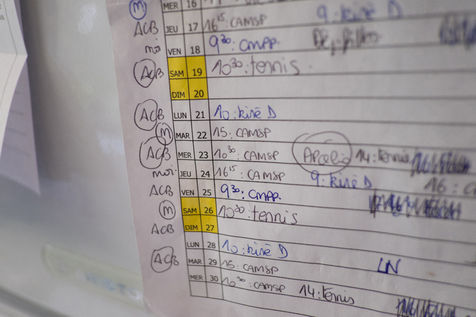 M MER 16
ACB JEU 17 16 15 : CAMSP 9 : Kiné D
moi VEN 18 9 30 : CMPP.
ACB SAM 19 10 30 : tennis.
DIM 20
ACB LUN 21 10 : Kiné D
M MAR 22 15 : CAMSP
ACB MER 23 10 30 : CAMSP 14 : tennis
moi JEU 24 16 15 : CAMSP 9 : Kiné D 16 : C
ACB VEN 25 9 30 : CMPP.
M SAM 26 10 30 : tennis
ACB DIM 27
LUN 28 10 : Kiné D
ACB MAR 29 15 : CAMSP LN
MER 30 10 30 : CAMSP 14 : tennis